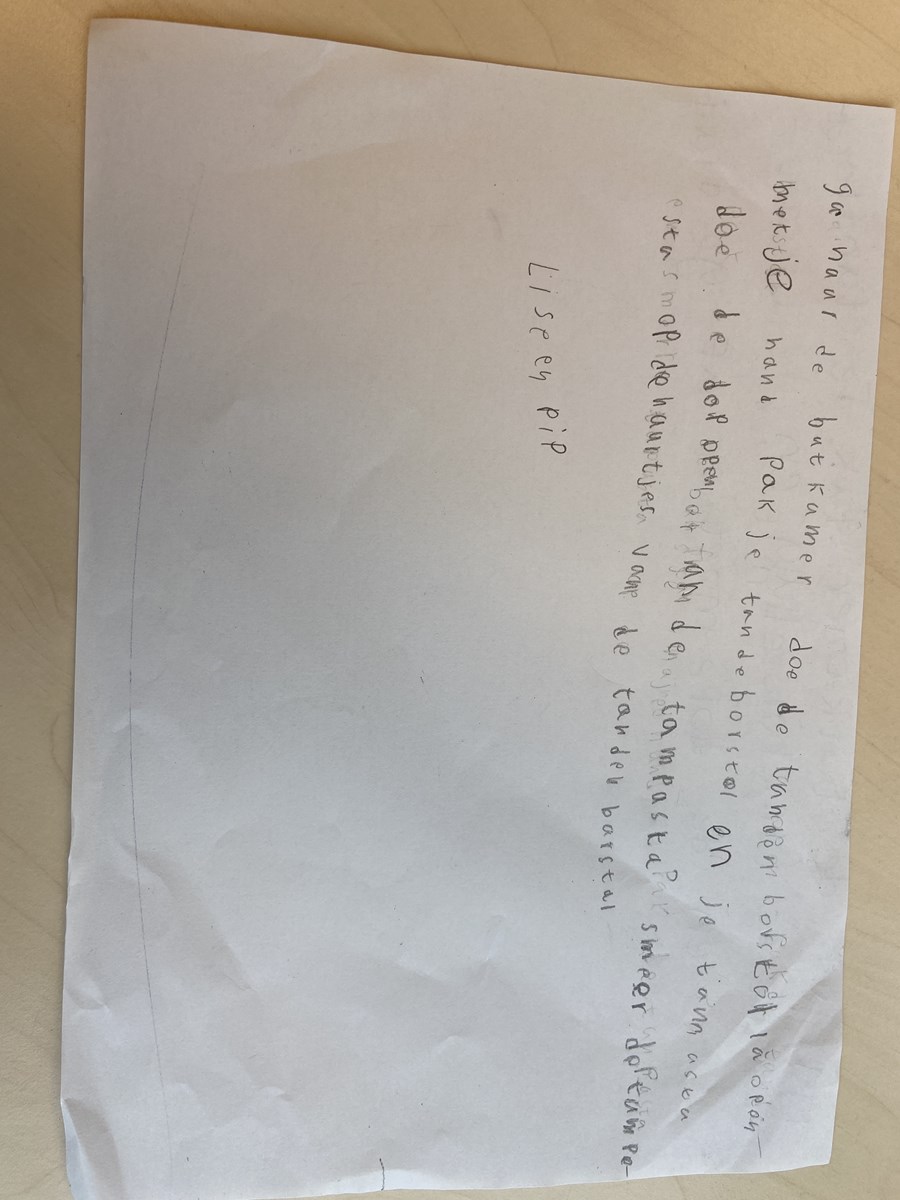 ga naar de batkamer doe de tanden borstol la open
metsje hand pak je tandeborstol en je tann asta
doe de dop open van de tampasta smeer de tampe-
astas mop de haartjes van de tanden barstal
Lise en pip